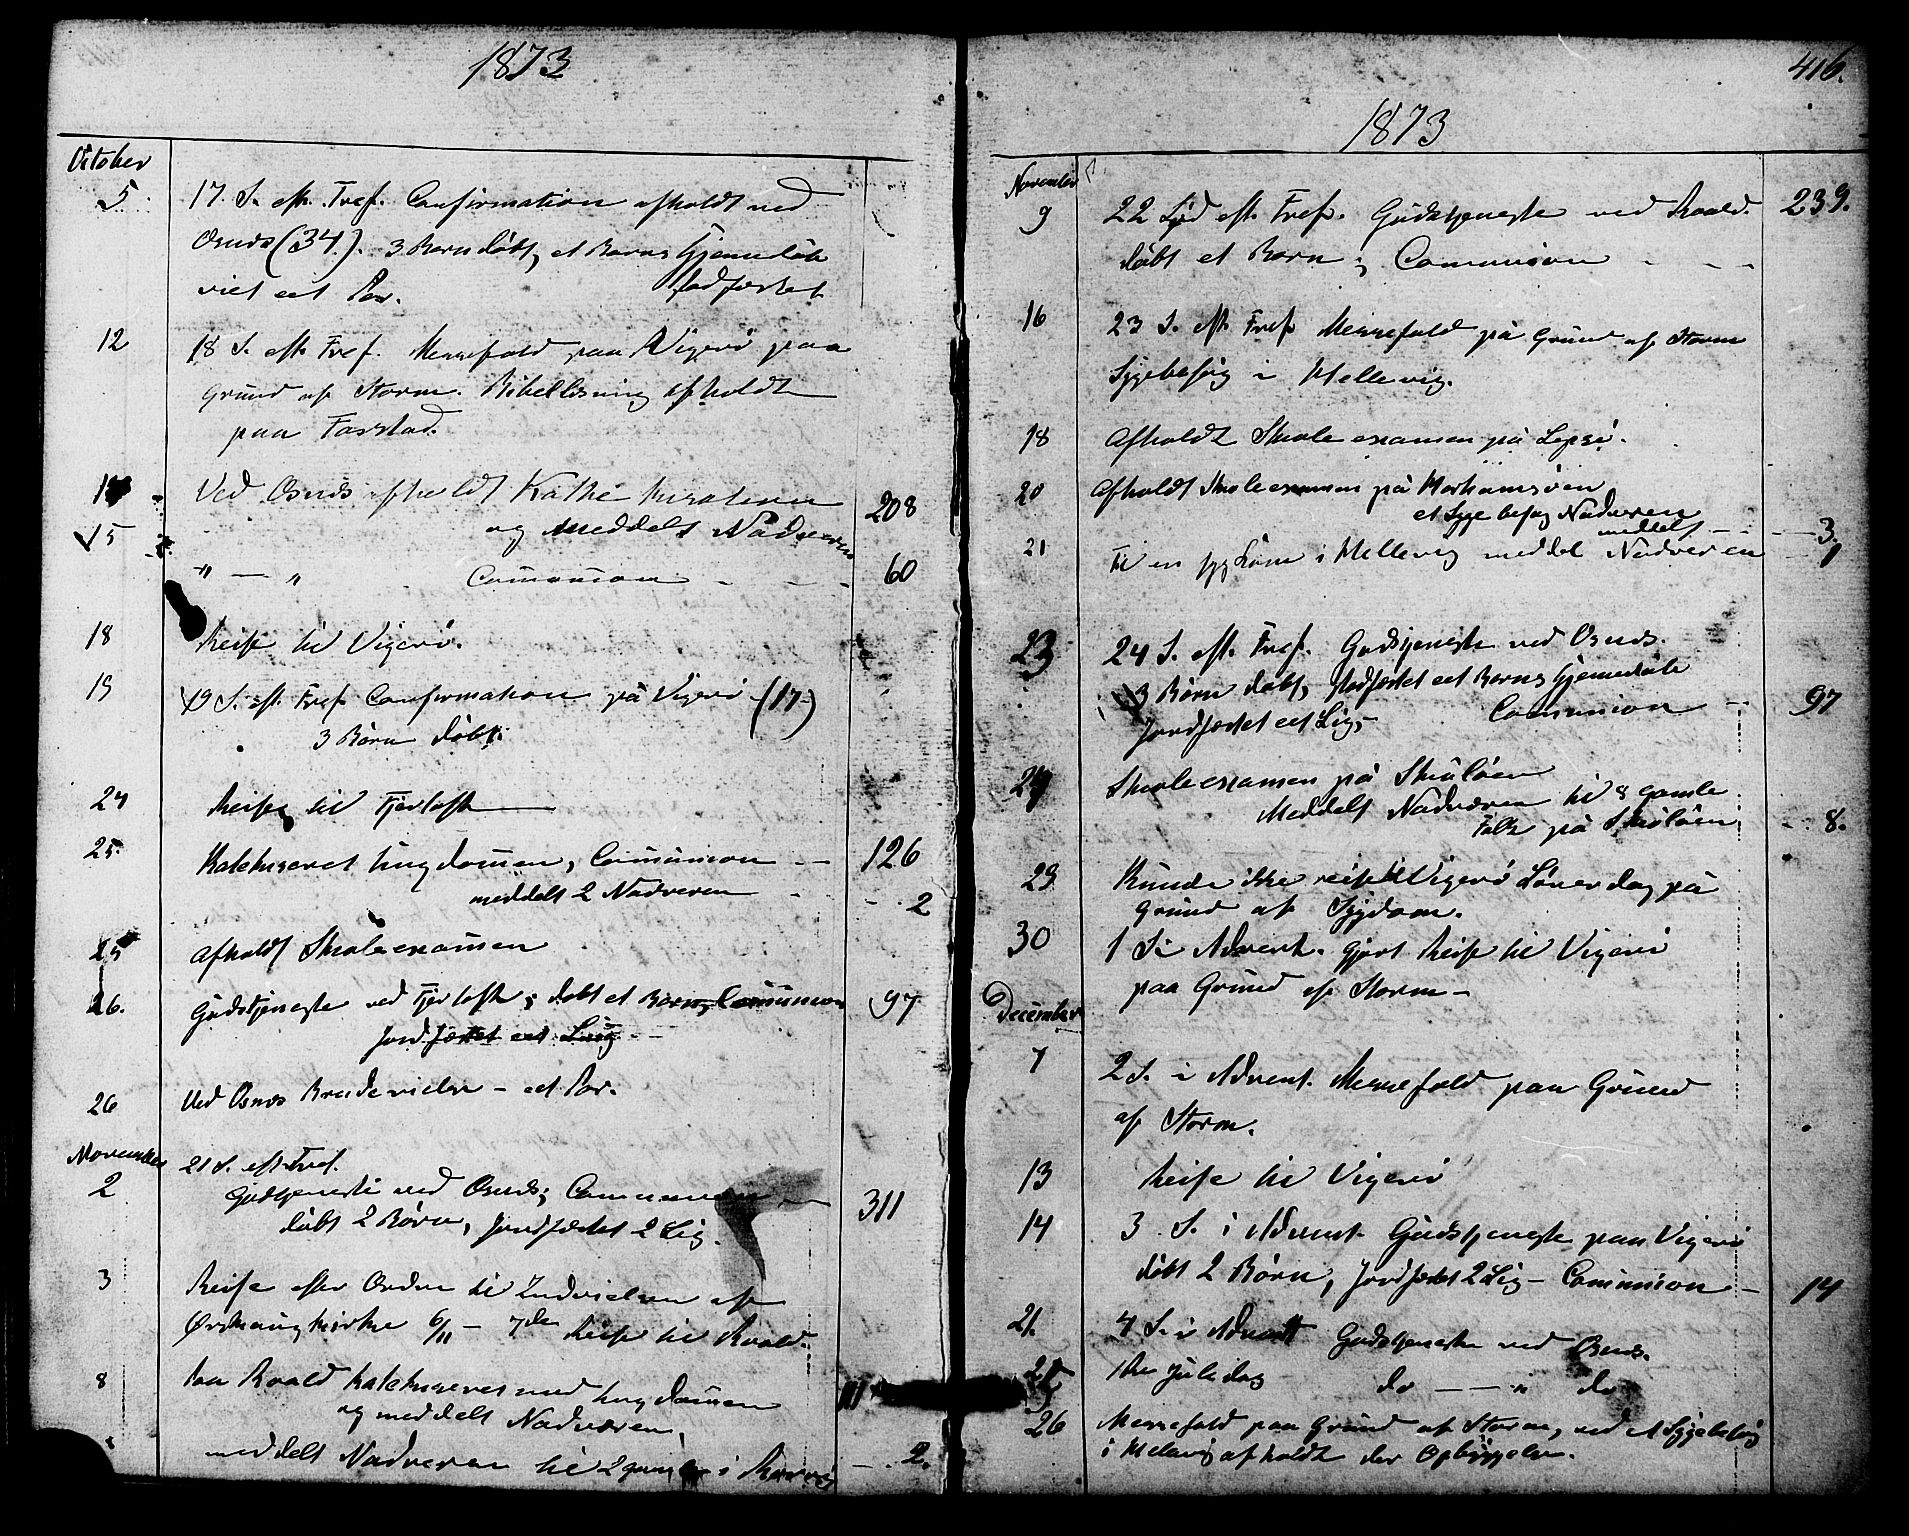 1873
October
5. 17. S. eft. Tref. Confirmation afholdt ved
Osnæs (34.). 3 Børn døbt, et Barns Hjemmedåb
viet eet Par. stadfæstet
12 18 S. eft. Tref. Messefald paa Vigerø paa
Grund af Storm. Bibellæsning afholdt
paa Farstad.
Ved Osnæs afholdt
15 og meddelt Nadveren 208
" — " Communion - - - 60
18 Reise til Vigerø.
19 19 S. eft. Tref. Confirmation på Vigerø (17)
3 Børn døbt.
24 Reise til Fjørtoft
25. Katekiseret Ungdommen, Communion - - 126
meddelt 2 Nadveren - - - 2
25 Afholdt Skoleexamen
26. Gudstjeneste ved Fjørtoft; døbt et Barn, Communion 97
Jordfæstet eet Liig
26 Ved Osnæs Brudevielse - et Par.
November
2 21 S. eft Tref.
Gudstjeneste ved Osnæs; Communion - 311
døbt 2 Børn, Jordfæstet 2 Lig.
3 Reise efter Ordre til Indvielsen af
Ørskaug Kirke 6/11 - 7de Reise til Roald.
8 Paa Roald Katekiseret med Ungdommen
og meddelt Nadveren,
meddelt Nadveren til 2 i - . 2.
416.
1873
November
9 22 Sød eft. Tref. Gudstjeneste ved Roald. 239.
døbt et Barn; Communion - - -
16 23 S. eft Tref Messefald på Grund af Storm
Sygebesøg i Hellevig.
18 Afholdt Skoleexamen på Lepsø.
20 Afholdt Skoleexamen på Harhamsøen
et Sygebesøg Nadveren
meddelt - - - 3.
21 Til en syg i Hellevig meddel Nadveren 1
23 24 S. eft. Tref. Gudstjeneste ved Osnæs.
3 Børn døbt, stadfæstet eet Barns Hjemmedåb
Jordfæstet eet Lig, Communion - 97
Skoleexamen på Skuløen
Meddelt Nadveren til 8 gamle
Folk på Skuløen - . 8.
29 Kunde ikke reise til Vigerø Lørerdag på
Grund af Sygdom.
30 1 S. i Advent. gjort Reise til Vigerø
paa Grund af Storm -
December
7 2 S. i Advent. Messefald paa Grund
af Storm.
13 Reise til Vigerø
14 3. S. i Advent. Gudstjeneste paa Vigerø
døbt 2 Børn, Jordfæstet 2 Lig - Communion - 14
21. 4 S. i Advent Gudstjeneste ved Osnæs.
25 1ste Juledag do — — " do
26 Messefald paa Grund af Storm, ved et Sygebesøg
i afholdt der Opbyggelse.